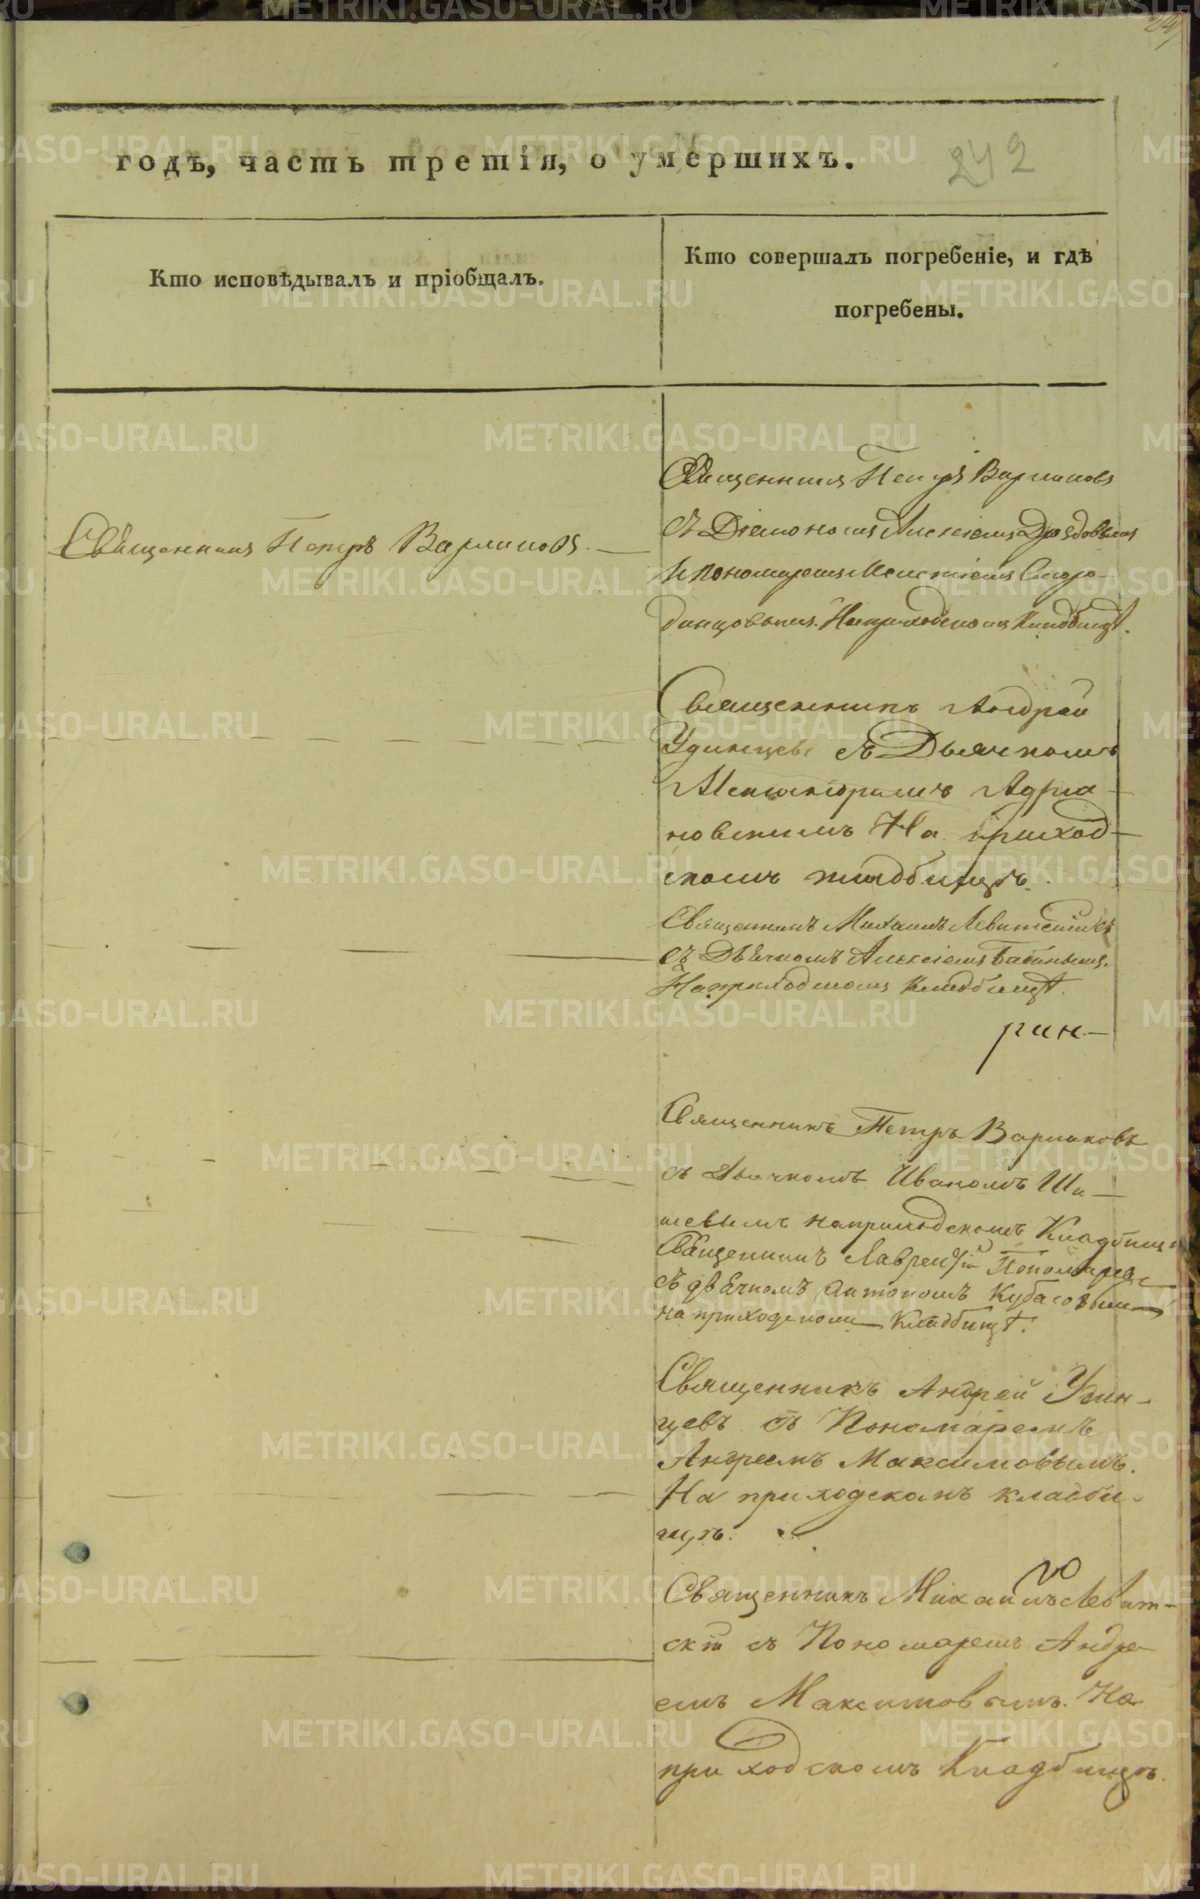 годъ, часть третія, о умершихъ.
242
Кто исповѣдывалъ и пріобщалъ.
Кто совершалъ погребеніе, и гдѣ
погребены.
Священникъ Петръ Варлаковъ
Священникъ Петръ Варлаковъ
съ Діакономъ Алексіемъ Дроздовымъ
и Пономаремъ
На приходскомъ Кладбищѣ.
Священникъ Андрей
Удинцевъ съ Дьячкомъ
Адриа-
новскимъ На приход-
скомъ кладбищѣ.
Священникъ Михаилъ Левитскій
съ Дьячкомъ Алексіемъ Бабинымъ.
На приходскомъ Кладбищѣ.
рин-
Священникъ Петръ Варлаковъ
съ Дьячкомъ Иваномъ Ши-
на приходскомъ Кладбищѣ
Священникъ Лаврентій Пономаревъ
съ дьячкомъ Антономъ Кубасовымъ
на приходскомъ Кладбищѣ.
Священникъ Андрей Удин-
цевъ съ Пономаремъ
Андреемъ Максимовымъ.
На приходскомъ кладби-
щѣ.
Священникъ Михаилъ Левит-
скій съ Пономаремъ Андре-
емъ Максимовымъ. На
приходскомъ Кладбищѣ.
METRIKI.GASO-URAL.RU